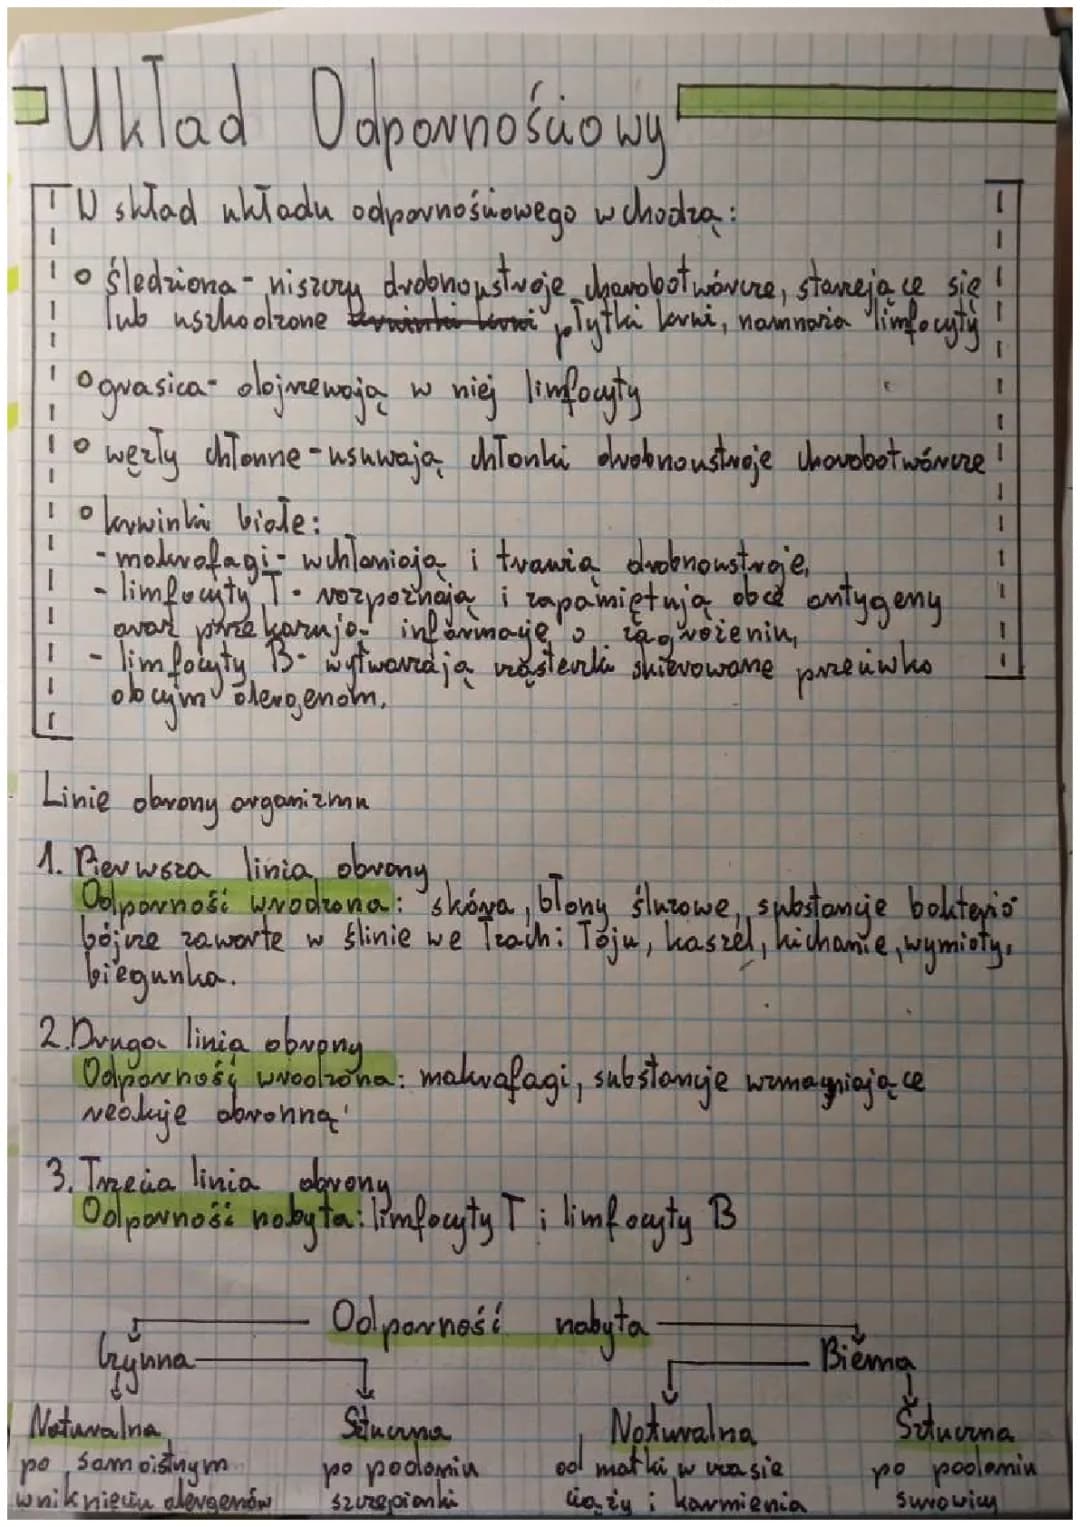 Układ Odpornościowy
W skład układu odpornościowego wchodzą:
śledziona - niszczy drobnoustroje chorobotwórcze, starzejące się
lub uszkodzone krwinki krwi płytki krwi, namnaża limfocyty
grasica - dojrzewają w niej limfocyty
węzły chłonne - usuwają chłonki drobnoustroje chorobotwórcze
krwinki białe:
- makrofagi - wchłaniają i trawią drobnoustroje,
- limfocyty T - rozpoznają i zapamiętują obce antygeny
oraz przekazują informację o zagrożeniu,
- limfocyty B - wytwarzają cząsteczki skierowane przeciwko
obcym alergenom.
Linie obrony organizmu
1. Pierwsza linia obrony
Odporność wrodzona: skóra, błony śluzowe, substancje bakterio
bójcze zawarte w ślinie we łzach i łoju, kaszel, kichanie, wymioty,
biegunka.
2. Druga linia obrony
Odporność wrodzona: makrofagi, substancje wzmacniające
reakcje obronną
3. Trzecia linia obrony
Odporność nabyta: limfocyty T i limfocyty B
Odporność nabyta
Czynna Bierna
Naturalna Sztuczna Naturalna Sztuczna
po samoistnym po podaniu od matki w czasie po podaniu
wniknięciu alergenów szczepionki ciąży i karmienia surowicy